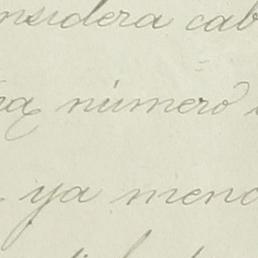 nsidera cab
ra número
ya menc